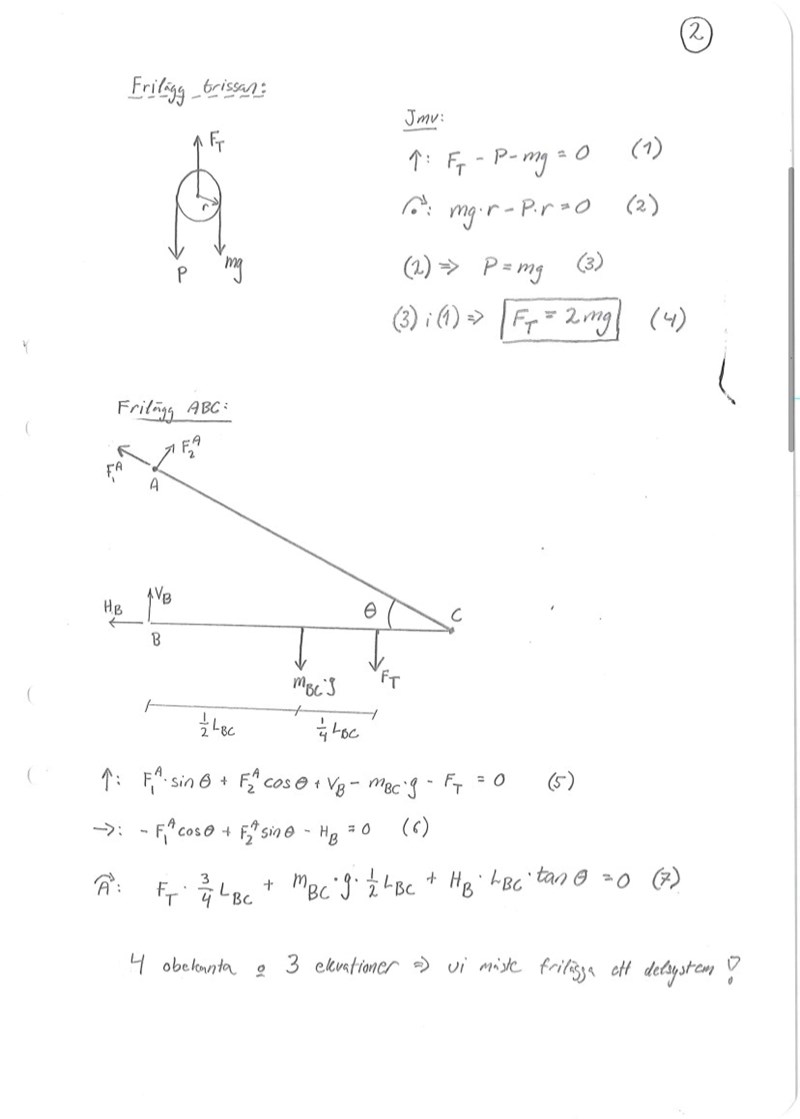 2
Frilägg trissan:
F_T
r
P
mg
Jmv:
↑: F_T - P - mg = 0 (1)
↷: mg·r - P·r = 0 (2)
(2) ⇒ P = mg (3)
(3) i (1) ⇒ F_T = 2mg (4)
Frilägg ABC:
F_1^A
F_2^A
A
H_B
V_B
B
θ
C
m_BC·g
F_T
1/2 L_BC
1/4 L_BC
↑: F_1^A · sin θ + F_2^A cos θ + V_B - m_BC·g - F_T = 0 (5)
→: - F_1^A cos θ + F_2^A sin θ - H_B = 0 (6)
A↷: F_T · 3/4 L_BC + m_BC·g · 1/2 L_BC + H_B · L_BC · tan θ = 0 (7)
4 obekanta o 3 ekvationer ⇒ vi måste frilägga ett delsystem!